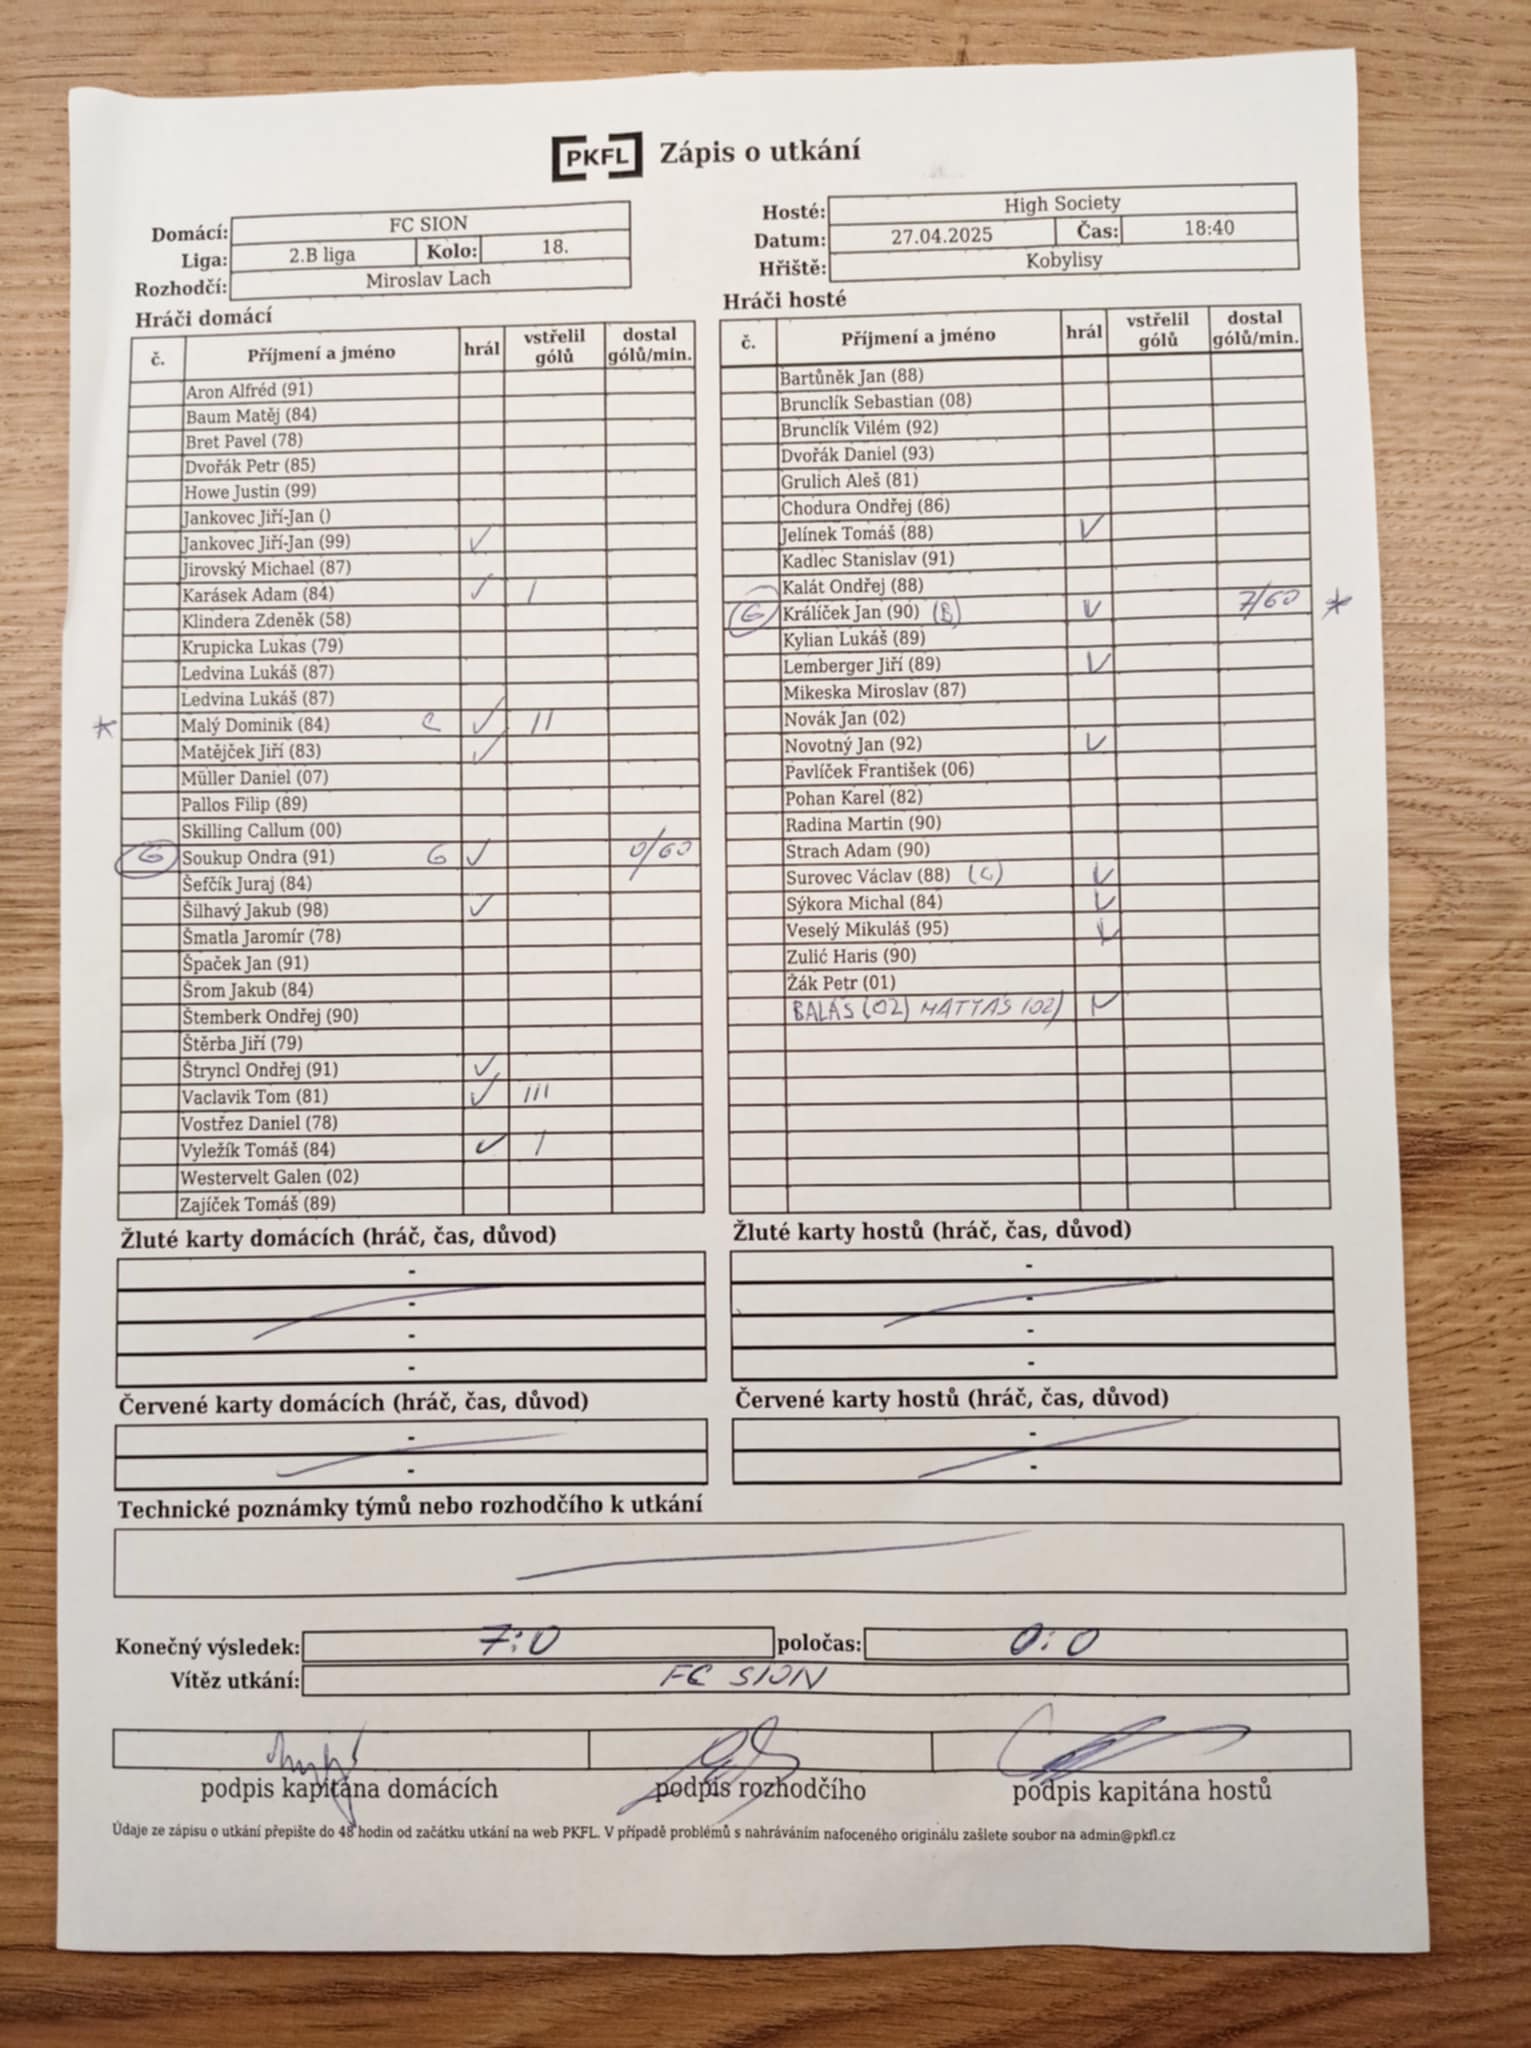 PKFL Zápis o utkání
Domácí: FC SION
Liga: 2.B liga Kolo: 18.
Rozhodčí: Miroslav Lach
Hosté: High Society
Datum: 27.04.2025 Čas: 18:40
Hřiště: Kobylisy
Hráči domácí
č. Příjmení a jméno hrál vstřelil gólů dostal gólů/min.
Aron Alfréd (91)
Baum Matěj (84)
Bret Pavel (78)
Dvořák Petr (85)
Howe Justin (99)
Jankovec Jiří-Jan ()
Jankovec Jiří-Jan (99) ✓
Jirovský Michael (87)
Karásek Adam (84) ✓ I
Klindera Zdeněk (58)
Krupicka Lukas (79)
Ledvina Lukáš (87)
Ledvina Lukáš (87)
* Malý Dominik (84) C ✓ II
Matějček Jiří (83) ✓
Müller Daniel (07)
Pallos Filip (89)
Skilling Callum (00)
G Soukup Ondra (91) G ✓ 0/60
Šefčík Juraj (84)
Šilhavý Jakub (98) ✓
Šmatla Jaromír (78)
Špaček Jan (91)
Šrom Jakub (84)
Štemberk Ondřej (90)
Štěrba Jiří (79)
Štryncl Ondřej (91) ✓
Vaclavik Tom (81) ✓ III
Vostřez Daniel (78)
Vyležík Tomáš (84) ✓ I
Westervelt Galen (02)
Zajíček Tomáš (89)
Hráči hosté
č. Příjmení a jméno hrál vstřelil gólů dostal gólů/min.
Bartůněk Jan (88)
Brunclík Sebastian (08)
Brunclík Vilém (92)
Dvořák Daniel (93)
Grulich Aleš (81)
Chodura Ondřej (86)
Jelínek Tomáš (88) ✓
Kadlec Stanislav (91)
Kalát Ondřej (88)
G Králíček Jan (90) (B) ✓ 7/60 *
Kylian Lukáš (89)
Lemberger Jiří (89) ✓
Mikeska Miroslav (87)
Novák Jan (02)
Novotný Jan (92) ✓
Pavlíček František (06)
Pohan Karel (82)
Radina Martin (90)
Strach Adam (90)
Surovec Václav (88) (C) ✓
Sýkora Michal (84) ✓
Veselý Mikuláš (95) ✓
Zulić Haris (90)
Žák Petr (01)
BALÁŠ (02) MATYÁŠ (02) ✓
Žluté karty domácích (hráč, čas, důvod)
-
-
-
-
Žluté karty hostů (hráč, čas, důvod)
-
-
-
-
Červené karty domácích (hráč, čas, důvod)
-
-
Červené karty hostů (hráč, čas, důvod)
-
-
Technické poznámky týmů nebo rozhodčího k utkání
Konečný výsledek: 7:0 poločas: 0:0
Vítěz utkání: FC SION
podpis kapitána domácích podpis rozhodčího podpis kapitána hostů
Údaje ze zápisu o utkání přepište do 48 hodin od začátku utkání na web PKFL. V případě problémů s nahráváním nafoceného originálu zašlete soubor na admin@pkfl.cz